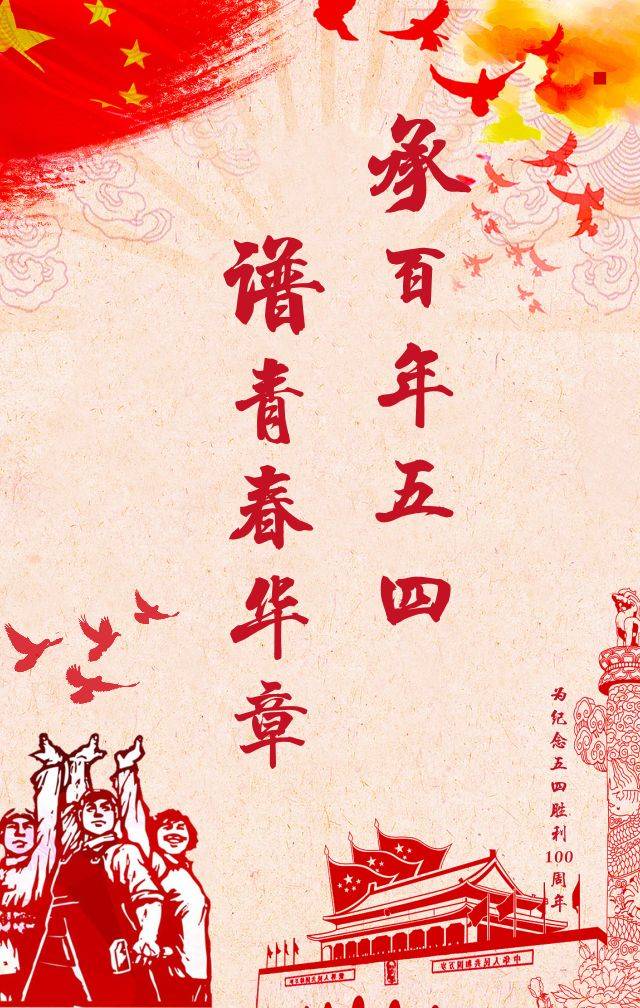 承百年五四
谱青春华章
为纪念五四胜利100周年